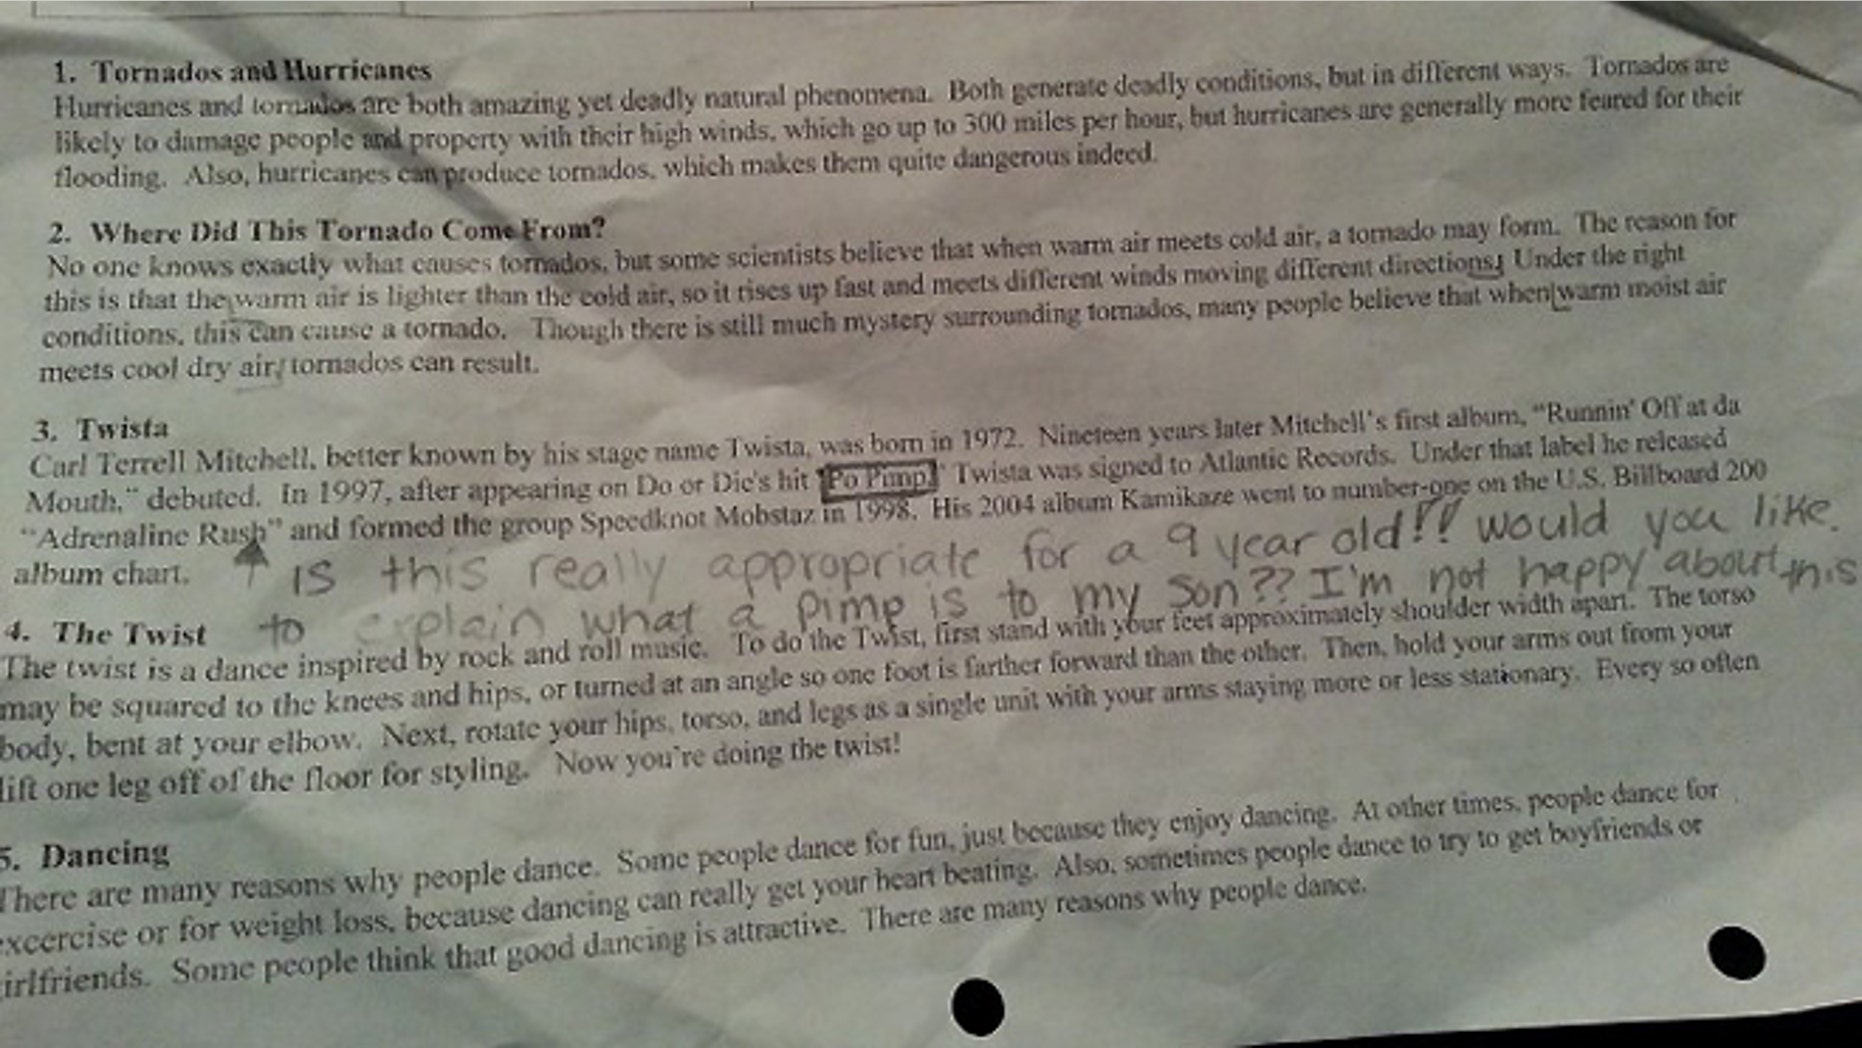 1. Tornados and Hurricanes
Hurricanes and tornados are both amazing yet deadly natural phenomena. Both generate deadly conditions, but in different ways. Tornados are
likely to damage people and property with their high winds, which go up to 300 miles per hour, but hurricanes are generally more feared for their
flooding. Also, hurricanes can produce tornados, which makes them quite dangerous indeed.
2. Where Did This Tornado Come From?
No one knows exactly what causes tornados, but some scientists believe that when warm air meets cold air, a tornado may form. The reason for
this is that the warm air is lighter than the cold air, so it rises up fast and meets different winds moving different directions. Under the right
conditions, this can cause a tornado. Though there is still much mystery surrounding tornados, many people believe that when warm moist air
meets cool dry air, tornados can result.
3. Twista
Carl Terrell Mitchell, better known by his stage name Twista, was born in 1972. Nineteen years later Mitchell's first album, "Runnin' Off at da
Mouth," debuted. In 1997, after appearing on Do or Die's hit "Po Pimp," Twista was signed to Atlantic Records. Under that label he released
"Adrenaline Rush" and formed the group Speedknot Mobstaz in 1998. His 2004 album Kamikaze went to number-one on the U.S. Billboard 200
album chart.
Is this really appropriate for a 9 year old!! Would you like
to explain what a pimp is to my son?? I'm not happy about this
4. The Twist
The twist is a dance inspired by rock and roll music. To do the Twist, first stand with your feet approximately shoulder width apart. The torso
may be squared to the knees and hips, or turned at an angle so one foot is farther forward than the other. Then, hold your arms out from your
body, bent at your elbow. Next, rotate your hips, torso, and legs as a single unit with your arms staying more or less stationary. Every so often
lift one leg off of the floor for styling. Now you're doing the twist!
5. Dancing
There are many reasons why people dance. Some people dance for fun, just because they enjoy dancing. At other times, people dance for
excercise or for weight loss, because dancing can really get your heart beating. Also, sometimes people dance to try to get boyfriends or
irlfriends. Some people think that good dancing is attractive. There are many reasons why people dance.